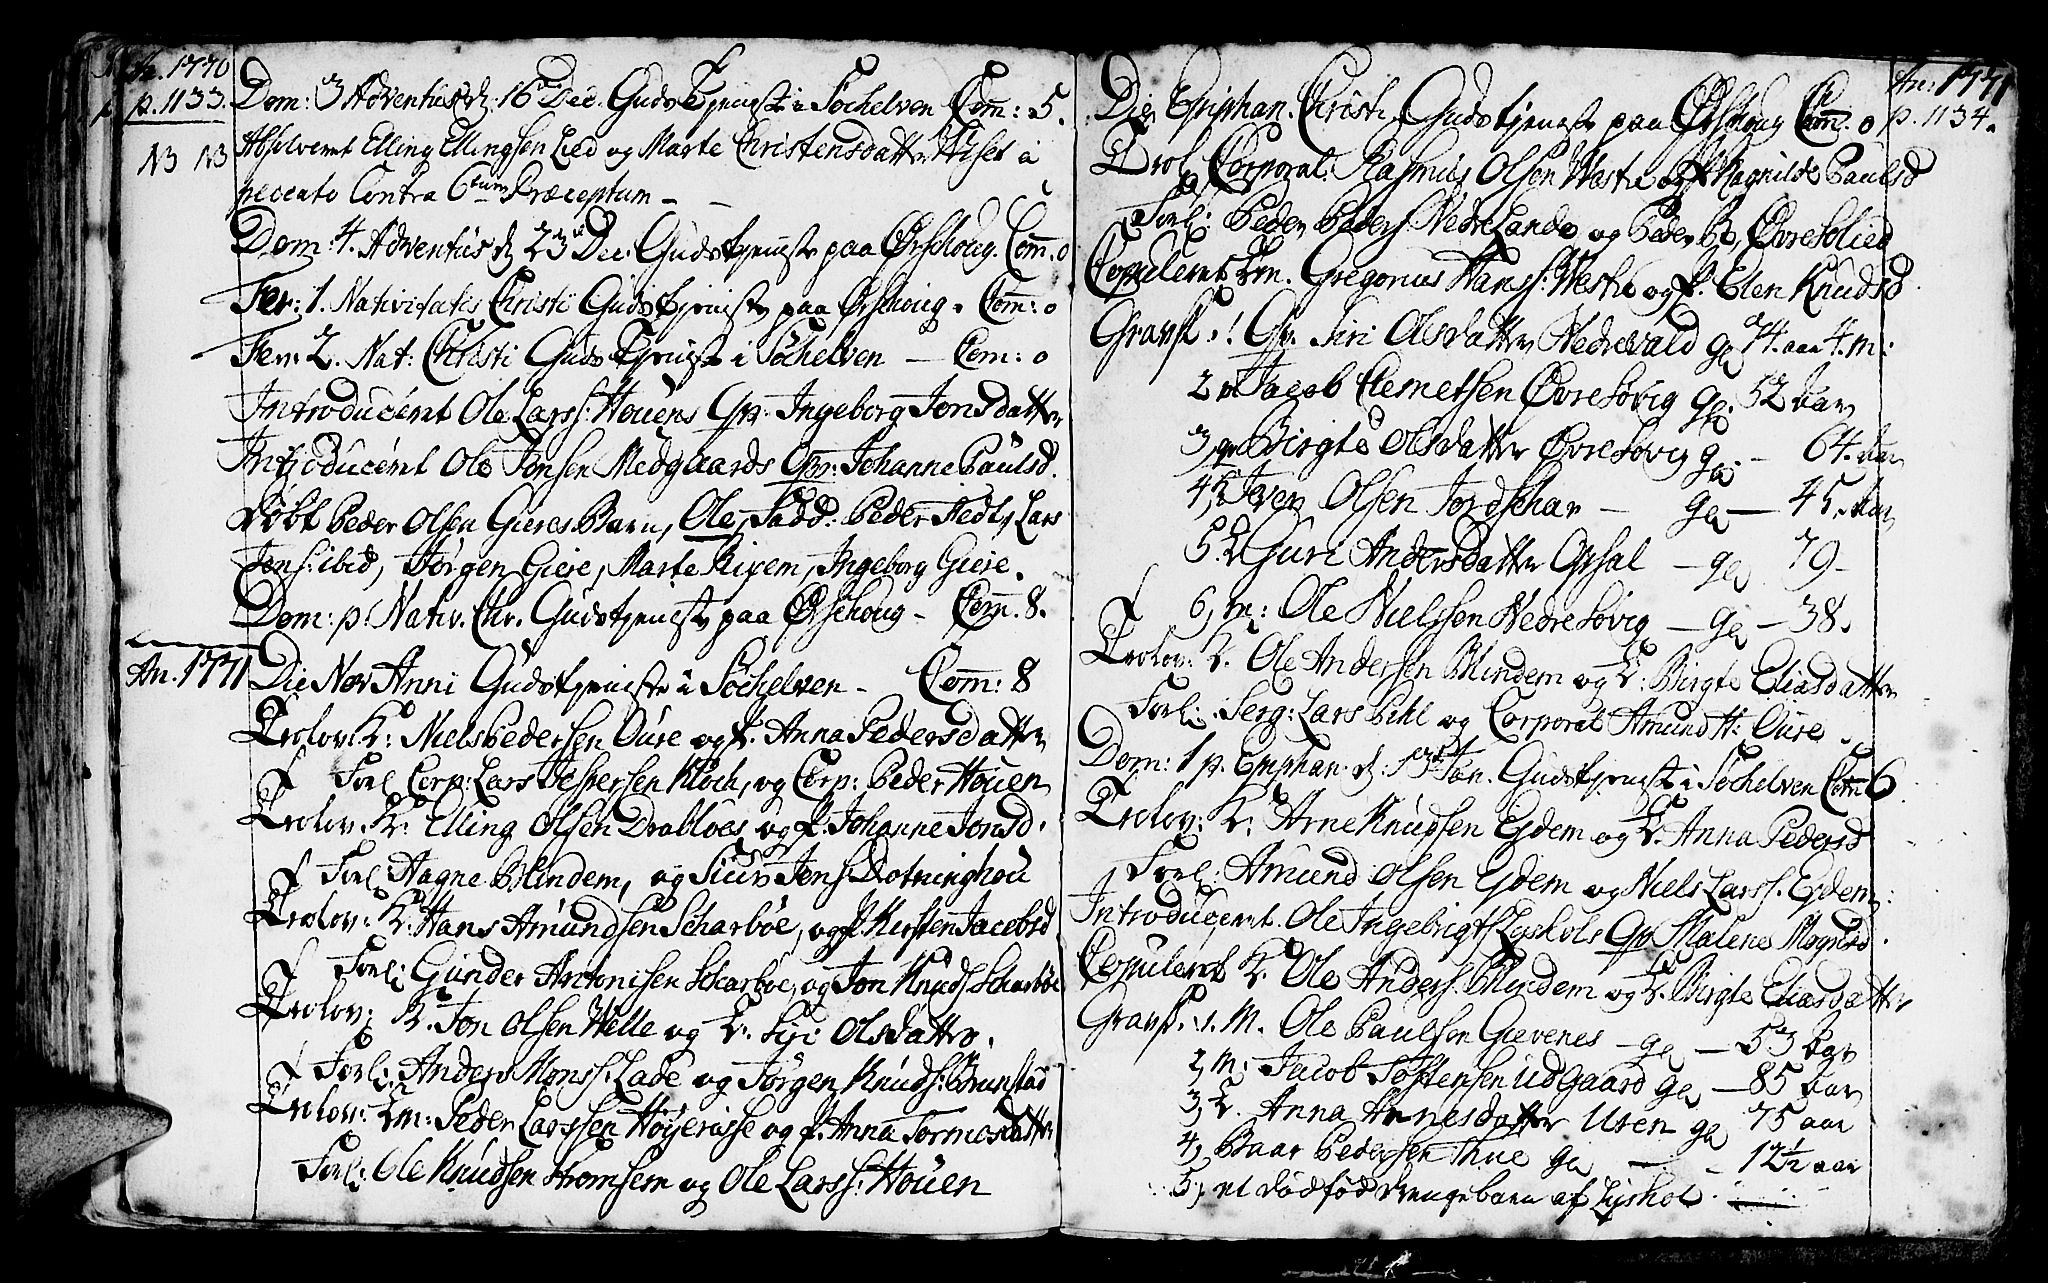 An. 1770
p. 1133.
Dom: 3 Adventus d: 16 Dec. Guds Tjeneste i Söchelven Com: 5.
NB NB
Absolveret Elling Ellingsen Lied og Marte Christensdatter à
peccato Contra 6tum Præceptum
Dom: 4. Adventus d 23 Dec: Gudstjeneste paa Ørschoug. Com. 0
Fer: 1. Nativitatis Christi Gudstjeneste paa Ørschoug. Com: 0
Fer: 2. Nat: Christi Guds Tjeneste i Söchelven Com: 0
Introduceret Ole Larss: Houens Qv: Ingeborg Jonsdatter
Introduceret Ole Jonsen Medgaards Qv: Johanne Paulsd.
Döbt Peder Olsen Gieres Barn, Ole, Fadd: Peder Lars
Jons: ibid, Jörgen Giere, Marte Ingeborg Giere.
Dom: p. Nativ. Chr. Gudstjeneste paa Ørschoug - Com. 8.
An. 1771
Die Nov Anni Gudstjeneste i Söchelven - Com: 8
Trolov: K: Niels Pedersen Oure og P. Anna Pedersdatter
Forl Corp: Lars Jespersen Kloch, og Corp: Peder Houen
Trolov. K: Elling Olsen Drabloes og P. Johanne Jonsd.
Forl: Hagne Blindem, og Siur Jens:
Trolov: K: Hans Amundsen Scharböe, og P Kirsten Jacobsd
Forl: Gunder Antonisen Scharböe, og Jon Knuds Scharböe
Trolov: K. Jon Olsen Welle og P: Siri Olsdatter.
Forl: Anders Monss: Lade og Jörgen Knuds: Brunstad
Trolov: Em: Peder Larssen og P. Anna
Forl: Ole Knudsen Stromsem og Ole Larss: Houen
An: 1771
p. 1134.
Die Epiphan. Christi Gudstjeneste paa Ørschoug Com: 0
Trol Corporal Rasmus Olsen Westre og P Ragnilde Paulsd
Forl: Peder Peders: Nedre Lande og Peder
Copuleret Em. Gregorius Hanss: Westre og P. Elen Knudsd
Grafest: 1 Qv. Siri Olsdatter Nedrevald gl 74. aar 4. m:
2 Jacob Clemetsen Øvre Sövig gl. 52 aar
3 qv Birgte Olsdatter Øvre Sövig gl. - 64. aar
4 Iver Olsen Jordschar - gl - 45. aar
5. Guri Andersdatter - gl 79 -
6, M: Ole Nielssen Nedre Sövig - gl - 38.
Trolov: K. Ole Andersen Blindem og P: Birgte Eliasdatter
Forl: Serg: Lars Pihl og Corporal Amund H: Oure.
Dom: 1 p. Epiphan. d: 13 Jan. Gudstjeneste i Söchelven Com 6
Trolov: K: Arne Knudsen Eydem og P. Anna Pedersd
Forl: Amund Olsen Eydem og Niels Larss. Eydem:
Introduceret Ole Ingebrigts Lyshols Qv Malene Mognsd.
Copuleret K. Ole Anders: Blindem og P. Birgte Eliasdatter
Grafst. 1. M. Ole Paulsen Giævenes - gl - 53 aar
2, M: Jacob Tostensen Udgaard gl - 85 aar
3, Anna Arnesdatter Uren gl 75 aar
4, Baar Pedersen Thue gl - 12½ aar
5, et dödföd drengebarn af Lyshol